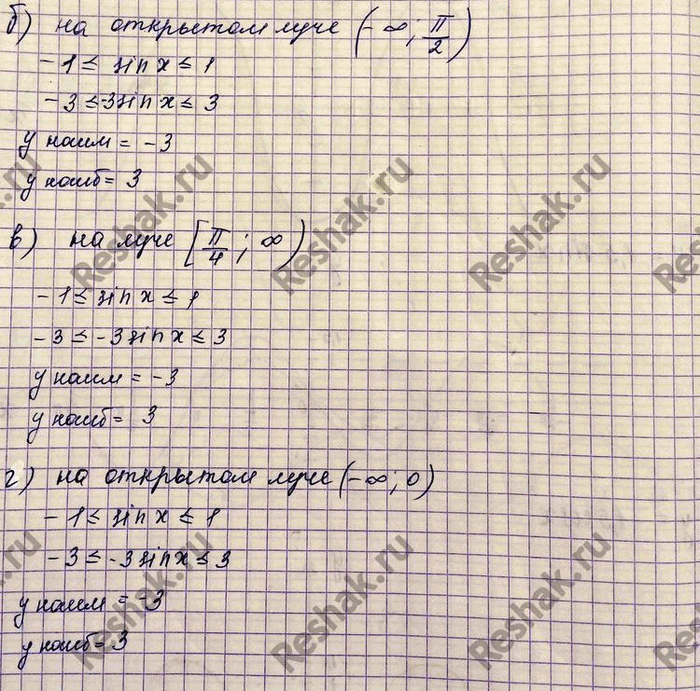 б) на открытом луче (-∞; π/2)
-1 ≤ sin x ≤ 1
-3 ≤ -3 sin x ≤ 3
y наим = -3
y наиб = 3
в) на луче [π/4; ∞)
-1 ≤ sin x ≤ 1
-3 ≤ -3 sin x ≤ 3
y наим = -3
y наиб = 3
г) на открытом луче (-∞; 0)
-1 ≤ sin x ≤ 1
-3 ≤ -3 sin x ≤ 3
y наим = -3
y наиб = 3
Reshak.ru
Reshak.ru
Reshak.ru
Reshak.ru
Reshak.ru
Reshak.ru